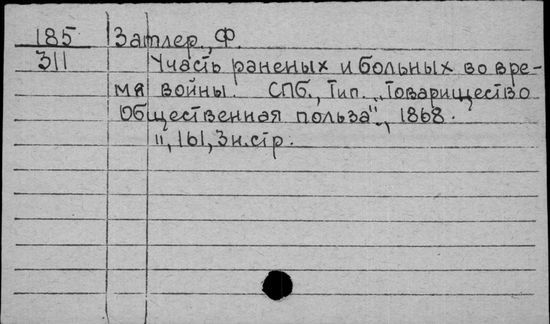 185 Затлер, Ф.
311 Участь раненых и больных во вре-
мя войны. СПб., Тип. "Товарищество
Общественная польза", 1868.
II, 161, 3 н.стр.